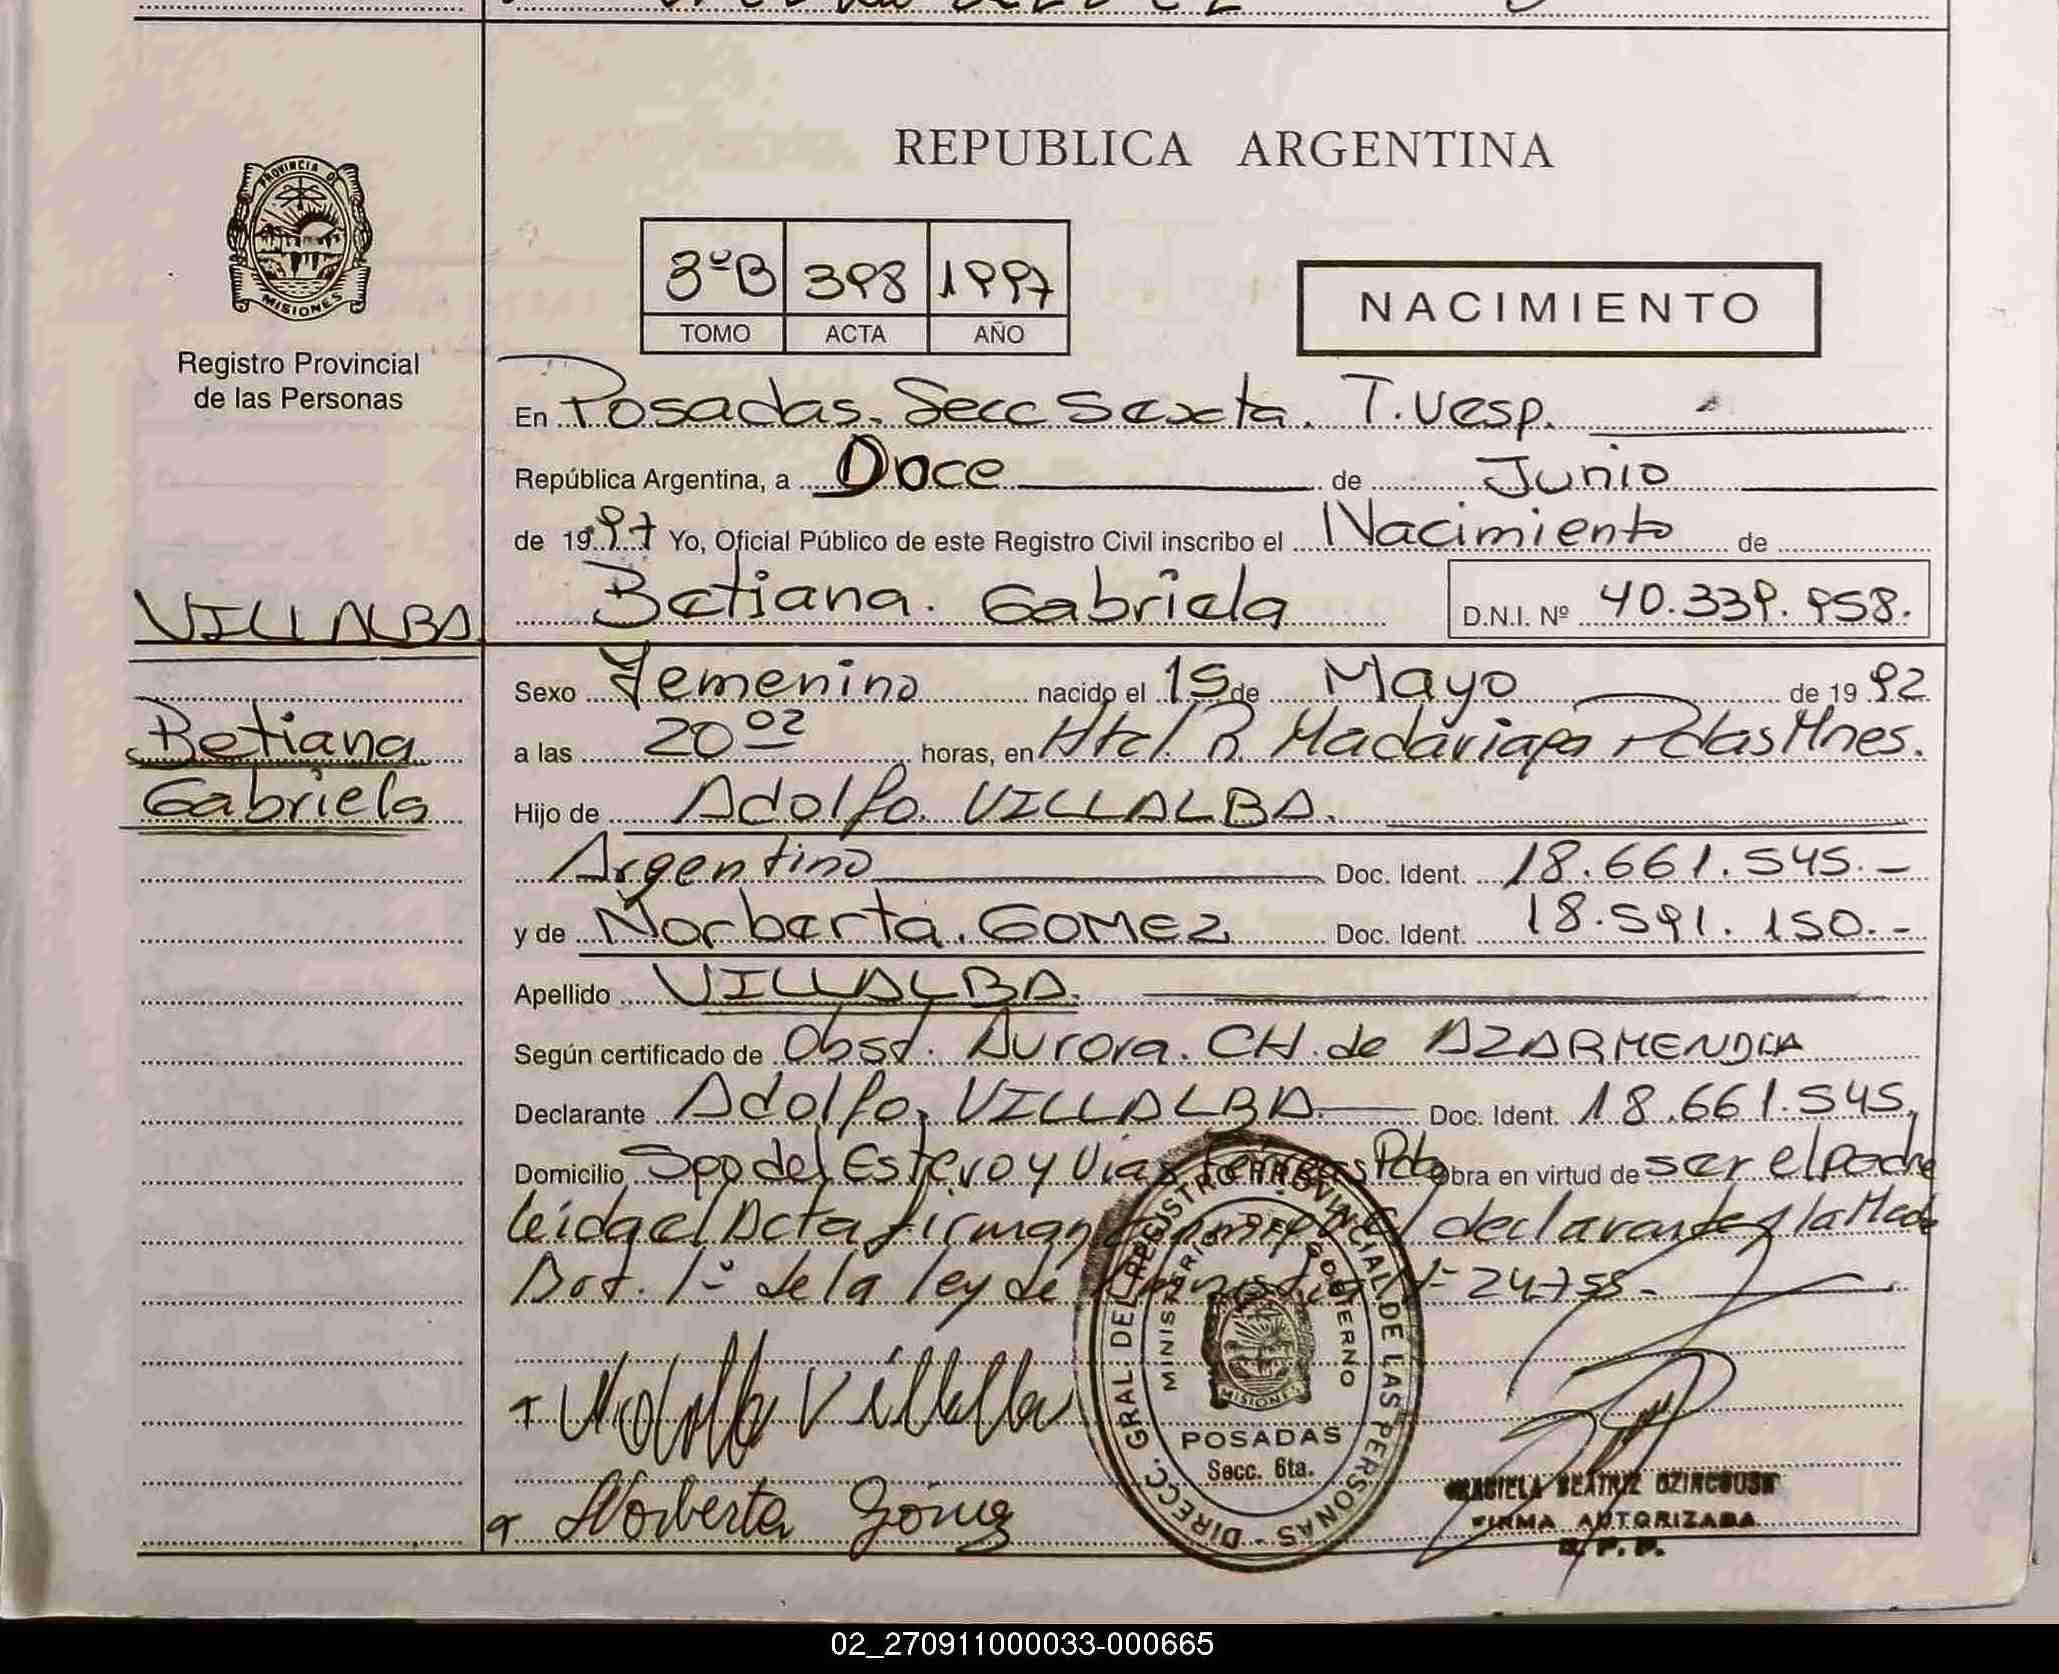 REPUBLICA ARGENTINA
PROVINCIA DE
MISIONES
Registro Provincial
de las Personas
3ºB 398 1997
TOMO ACTA AÑO
NACIMIENTO
En Posadas. Secc Sexta. T. Vesp.
República Argentina, a Doce de Junio
de 1997 Yo, Oficial Público de este Registro Civil inscribo el Nacimiento de
Betiana. Gabriela D.N.I. Nº 40.339.958.
VILLALBA
Betiana
Gabriela
Sexo Femenino nacido el 15 de Mayo de 1992
a las 20 02 horas, en Htal R. Madariaga Pdas Mnes.
Hijo de Adolfo. VILLALBA.
Argentino Doc. Ident. 18.661.545.-
y de Norberta. GOMEZ Doc. Ident. 18.591.150.-
Apellido VILLALBA.
Según certificado de Obst. Aurora. CH. de AZARMENDIA
Declarante Adolfo, VILLALBA. Doc. Ident. 18.661.545,
Domicilio Sgo del Estero y Vias Ferreas Pdas Obra en virtud de ser el padre
leida el Acta firman el declarante y la Madre
Art. 1º de la ley de Amnistia Nº 24755.-
Adolfo Villalba
Norberta Gómez
DIRECC. GRAL. DEL REGISTRO PROVINCIAL DE LAS PERSONAS
MINISTERIO DE GOBIERNO
MISIONES
POSADAS
Secc. 6ta.
GRACIELA BEATRIZ
FIRMA AUTORIZADA
R. P. P.
02_270911000033-000665